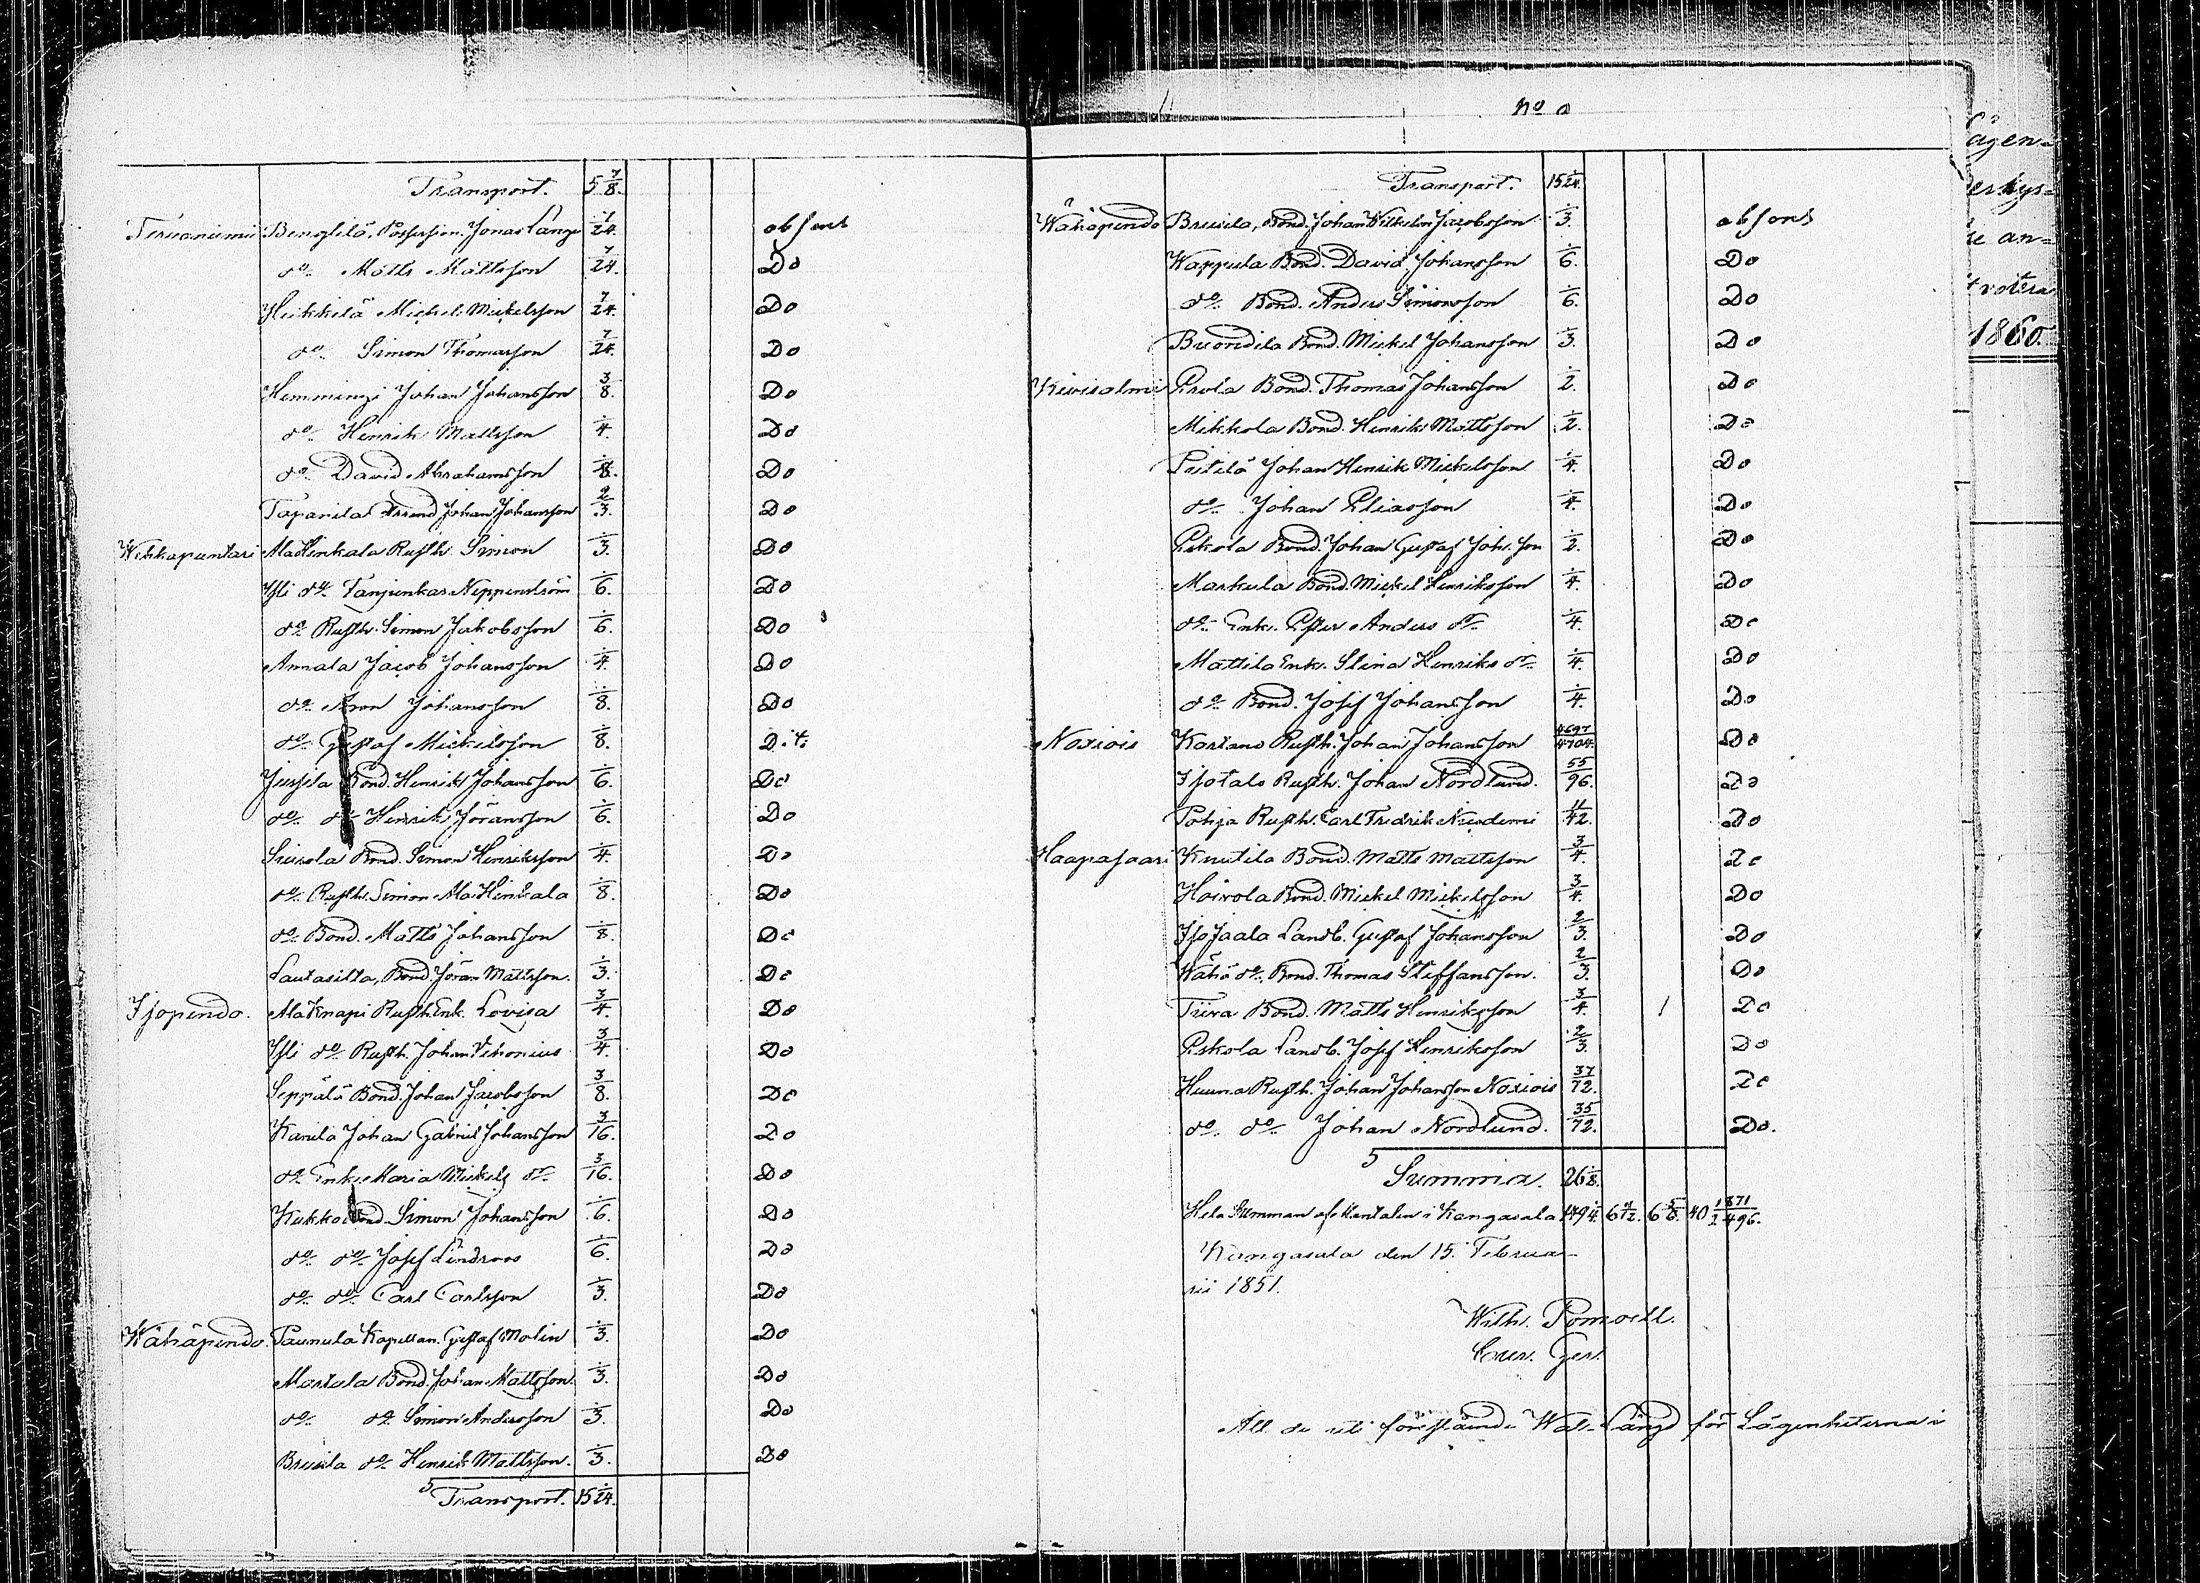 Transport. 5 7/8.
Bengtilä, Possession. Jonas Lange 7/24. absent
do Matts Mattsson 7/24. Do
Heikkilä Michel Mickelsson 7/24. Do
do Simon Thomasson 7/24. Do
Hemmingi Johan Johansson 3/8. Do
do Henrik Mattsson 1/4. Do
do David Abrahamsson 1/8. Do
Tapanila Johan Johansson 2/3. Do
Wehkapuntari Ala Hinkala Rusth. Simon 1/3. Do
Yli do Fanjunkar Neppenström 1/6. Do
do Rusth. Simon Jakobsson 1/6. Do
Annala Jacob Johansson 1/4. Do
do Aron Johansson 1/8. Do
do Gustaf Mickelsson 1/8. Dito
Jussila Bond. Henrik Johansson 1/6. Do
do do Henrik Jöransson 1/6. Do
Siurola Bond. Simon Henriksson 1/4. Do
do Rusth. Simon Ala Hinkala 1/8. Do
do Bond. Matts Johansson 1/8. Do
Lautasilta, Bond. Jöran Mattsson. 1/3. Do
Isopendo. Ala Knapi Rusth. Enk. Lovisa 3/4. Do
Yli do Rusth. Johan Vihonius 3/4. Do
Seppälä Bond. Johan Jacobsson 3/8. Do
Karila Johan Gabriel Johansson 3/16. Do
do Enk. Maria Mickels dr 3/16. Do
Kukko Bond. Simon Johansson 1/6. Do
do do Josef Lindroos 1/6. Do
do do Carl Carlsson 1/3. Do
Wähäpendo. Paunula Kapellan. Gustaf Molin 1/3. Do
Martala Bond. Johan Mattsson. 1/3. Do
do do Simon Andersson 1/3. Do
Brusila do Henrik Mattsson. 1/3. Do
Transport. 15 1/24.
No
Transport. 15 1/24.
Wähäpendo Brusila, Bond. Johan Wilhelm Jacobsson 1/3. absent
Wappula Bond. David Johansson 1/6. Do
do Bond. Anders Simonsson 1/6. Do
Buondila Bond. Mickel Johansson 1/3. Do
Kivisalmi Erola Bond. Thomas Johansson 1/2. Do
Mikkola Bond. Henrik Mattsson 1/2. Do
Poitilä Johan Henrik Mickelsson 1/4. Do
do Johan Eliasson 1/4. Do
Eskola Bond. Johan Gustaf Joh. son 1/2. Do
Markula Bond. Mickel Henriksson 1/4. Do
do Enk. Ester Anders dr 1/4. Do
Mattila Enk. Stina Henriks dr 1/4. Do
do Bond. Josef Johansson 1/4. Do
Noxiois Kartano Rusth. Johan Johansson 4697/4704. Do
Isotalo Rusth. Johan Nordlund. 55/96. Do
Pohja Rusth. Carl Fredrik Nicodemi 11/42. Do
Haapasaari Knutila Bond. Matts Mattsson 3/4. Do
Hoivola Bond. Mickel Mickelsson 3/4. Do
Iso Jaala Landb. Gustaf Johansson 2/3. Do
Wähä do, Bond. Thomas Steffansson. 2/3. Do
Tiira Bond. Matts Henriksson 3/4. Do
Eskola Landb. Josef Henriksson 2/3. Do
Huuna Rusth. Johan Johansson Noxiois 37/72. Do
do do Johan Nordlund. 35/72. Do.
Summa. 26 1/8.
Hela Summan af Mantalen i Kangasala 149 1/4.
Kangasala den 15. Februa-
rii 1851.
Wilh. Pomoell.
All de uti förestående Wal-Längd för Lägenheterna i
1860.